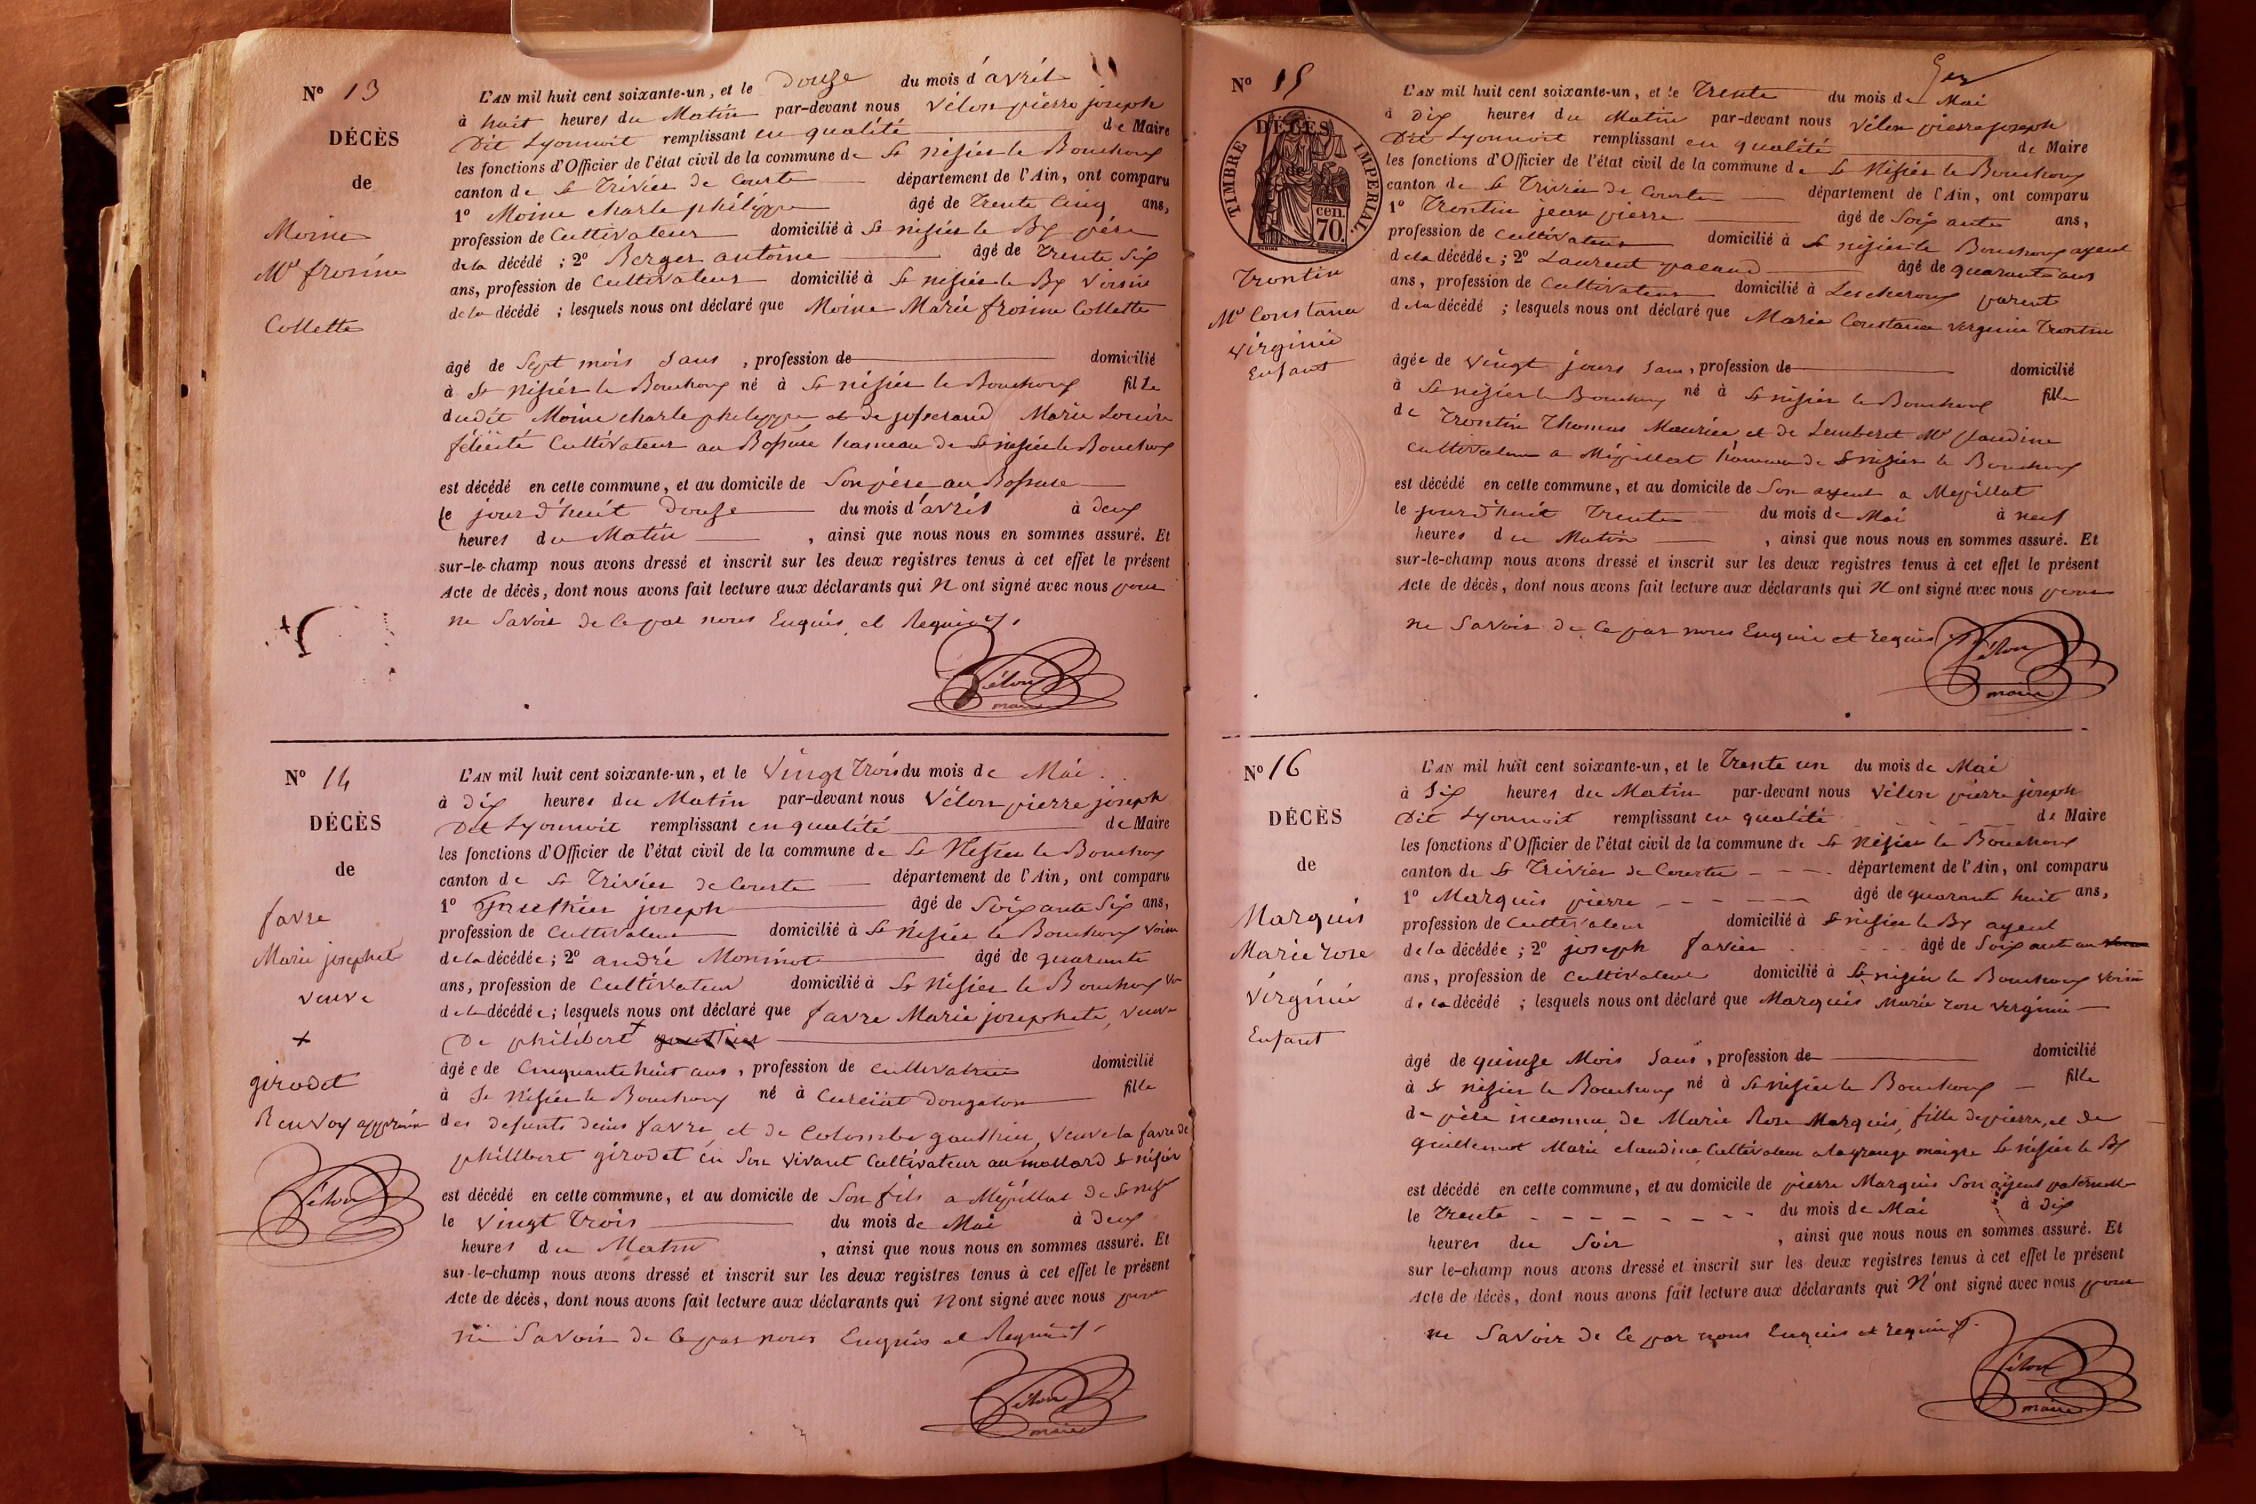 N° 13
DÉCÈS
de
Moine
Mie frosine
Collette
L'AN mil huit cent soixante-un, et le Douze du mois d'avril
à huit heures du Matin par-devant nous Vélon pierre joseph
Dit Lyonnoit remplissant en qualité de Maire
les fonctions d'Officier de l'état civil de la commune de St Nisier le Bouchoux
canton de St Trivier de Courte département de l'Ain, ont comparu
1° Moine charle philippe âgé de Trente Cinq ans,
profession de Cultivateur domicilié à St nisier le Bx père
de la décédé ; 2° Berger antoine âgé de Trente Six
ans, profession de Cultivateur domicilié à St nisier le Bx Voisin
de la décédé ; lesquels nous ont déclaré que Moine Marie frosine Collette
âgé de Sept mois Sans , profession de domicilié
à St Nisier le Bouchoux né à St nisier le Bouchoux fille
dudit Moine charle philippe et de josserand Marie Louise
félicité Cultivateur au Bossue hameau de St nisier le Bouchoux
est décédé en cette commune, et au domicile de Son père au Bossue
le jourd'huit Douze du mois d'avril à deux
heures du Matin , ainsi que nous nous en sommes assuré. Et
sur-le-champ nous avons dressé et inscrit sur les deux registres tenus à cet effet le présent
Acte de décès, dont nous avons fait lecture aux déclarants qui N ont signé avec nous pour
ne Savoir de ce par nous Enquis et Requis
Vélon
maire
N° 14
DÉCÈS
de
favre
Marie josephete
veuve
+
girodet
Renvoy approuvé
Vélon
L'AN mil huit cent soixante-un, et le Vingt Trois du mois de Mai
à dix heures du Matin par-devant nous Vélon pierre joseph
Dit Lyonnoit remplissant en qualité de Maire
les fonctions d'Officier de l'état civil de la commune de St Nisier le Bouchoux
canton de St Trivier de Courte département de l'Ain, ont comparu
1° Gauthier joseph âgé de Soixante Six ans,
profession de Cultivateur domicilié à St Nisier le Bouchoux Voisin
de la décédée ; 2° andré Moninot âgé de quarante
ans, profession de Cultivateur domicilié à St Nisier le Bouchoux
de la décédée ; lesquels nous ont déclaré que favre Marie josephete, veuve
De philibert + gauthier
âgée de Cinquante huit ans , profession de cultivatrice domicilié
à St Nisier le Bouchoux né à Curciat Dongalon fille
des defunts denis favre et de Colombe gauthier, veuve la favre de
philibert girodet en Son vivant Cultivateur au mollard St nisier
est décédé en cette commune, et au domicile de Son fils a Mépillat de St nisier
le vingt Trois du mois de Mai à deux
heures du Matin , ainsi que nous nous en sommes assuré. Et
sur-le-champ nous avons dressé et inscrit sur les deux registres tenus à cet effet le présent
Acte de décès, dont nous avons fait lecture aux déclarants qui N ont signé avec nous pour
ne Savoir de ce par nous Enquis et Requis
Vélon
maire
N° 15
TIMBRE IMPÉRIAL
DÉCÈS
de
cen. 70.
Trontin
Mie Constance
Virginie
Enfant
L'AN mil huit cent soixante-un, et le Trente du mois de Mai
à dix heures du Matin par-devant nous Vélon pierre joseph
Dit Lyonnoit remplissant en qualité de Maire
les fonctions d'Officier de l'état civil de la commune de St Nisier le Bouchoux
canton de St Trivier de Courte département de l'Ain, ont comparu
1° Trontin jean pierre âgé de Soixante ans,
profession de Cultivateur domicilié à St nisier le Bouchoux ayeul
de la décédée ; 2° Laurent pacaud âgé de quarante ans
ans, profession de Cultivateur domicilié à Lescheroux parent
de la décédé ; lesquels nous ont déclaré que Marie Constance Virginie Trontin
âgée de vingt jours Sans , profession de domicilié
à St nisier le Bouchoux né à St nisier le Bouchoux fille
de Trontin Thomas Maurice et de Lemberet Mie Claudine
Cultivateur a Mépillat hameau de St nisier le Bouchoux
est décédé en cette commune, et au domicile de Son ayeul a Mepillat
le jourd'huit Trente du mois de Mai à neuf
heures du Matin , ainsi que nous nous en sommes assuré. Et
sur-le-champ nous avons dressé et inscrit sur les deux registres tenus à cet effet le présent
Acte de décès, dont nous avons fait lecture aux déclarants qui N ont signé avec nous pour
ne Savoir de ce par nous Enquis et requis
Vélon
maire
N° 16
DÉCÈS
de
Marquis
Marie rose
Virginie
Enfant
L'AN mil huit cent soixante-un, et le Trente un du mois de Mai
à Six heures du Matin par-devant nous Vélon pierre joseph
Dit Lyonnoit remplissant en qualité de Maire
les fonctions d'Officier de l'état civil de la commune de St Nisier le Bouchoux
canton de St Trivier de Courte département de l'Ain, ont comparu
1° Marquis pierre âgé de quarante huit ans,
profession de Cultivateur domicilié à St nisier le Bx ayeul
de la décédée ; 2° joseph favier âgé de Soixante
ans, profession de Cultivateur domicilié à St nisier le Bouchoux Voisin
de la décédé ; lesquels nous ont déclaré que Marquis Marie rose Virginie
âgé de quinze Mois Sans , profession de domicilié
à St nisier le Bouchoux né à St nisier le Bouchoux fille
de père inconnu, de Marie Rose Marquis, fille de pierre, et de
guillemot Marie claudine Cultivateur a la grange maigre St nisier le Bx
est décédé en cette commune, et au domicile de pierre Marquis Son ayeul paternelle
le Trente du mois de Mai à dix
heures du Soir , ainsi que nous nous en sommes assuré. Et
sur le-champ nous avons dressé et inscrit sur les deux registres tenus à cet effet le présent
Acte de décès, dont nous avons fait lecture aux déclarants qui N'ont signé avec nous pour
ne Savoir de ce par nous Enquis et requis
Vélon
maire